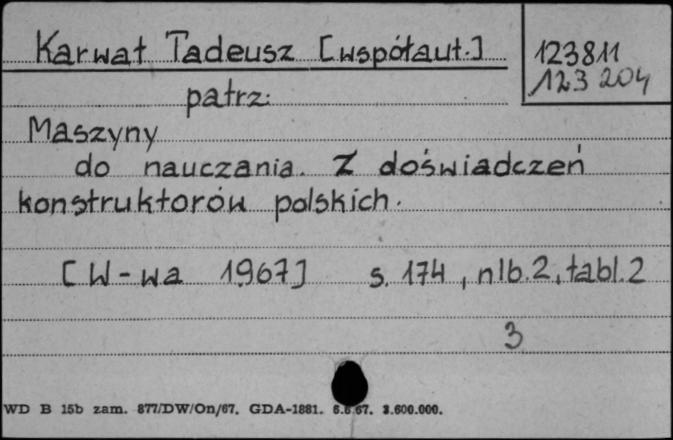 Karwat Tadeusz [współaut.]
123811
123 204
patrz:
Maszyny
do nauczania. Z doświadczeń
konstruktorów polskich.
[W-wa 1967] s. 174, nlb. 2, tabl. 2
3
WD B 15b zam. 877/DW/On/67. GDA-1881. 6.6.67. 3.600.000.